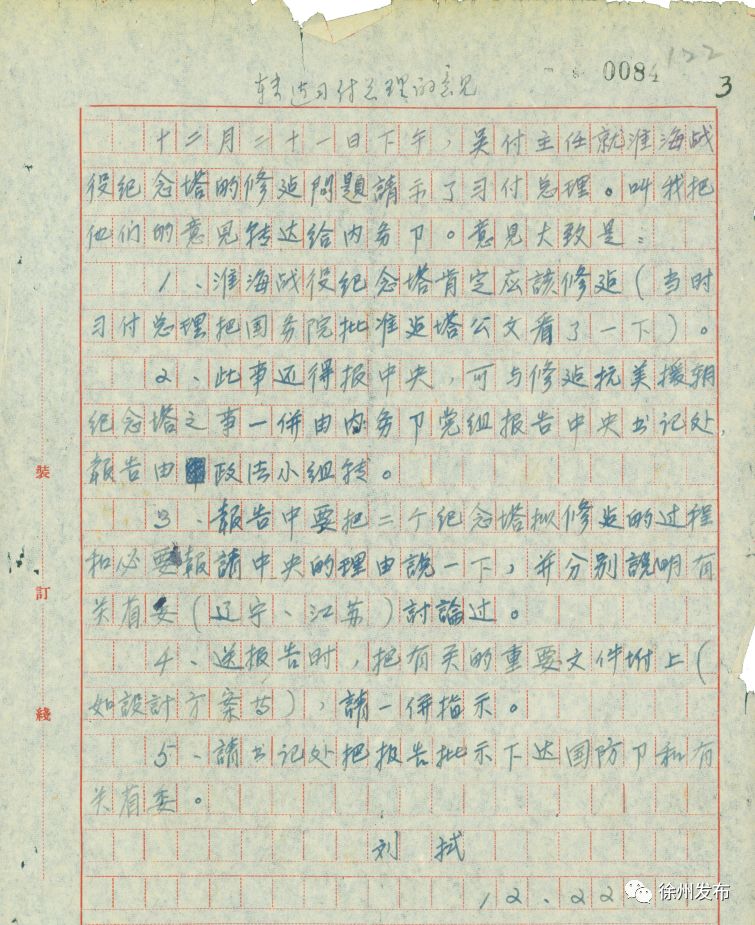 0084
122
3
转达习付总理的意见
十二月二十一日下午，吴付主任就淮海战
役纪念塔的修建問題請示了习付总理。叫我把
他们的意见转达给内务卩。意见大致是：
1、淮海战役纪念塔肯定应該修建（当时
习付总理把国务院批准建塔公文看了一下）。
2、此事还得报中央，可与修建抗美援朝
纪念塔之事一併由内务卩党组报告中央书记处，
報告由政法小组转。
3、報告中要把二个纪念塔拟修建的过程
和必要報請中央的理由說一下，并分别說明有
关省委（辽宁、江苏）討論过。
4、送报告时，把有关的重要文件坿上（
如設計方案等），請一併指示。
5、請书记处把报告批示下达国防卩和有
关省委。
刘拭
12.22
裝
訂
綫
徐州发布